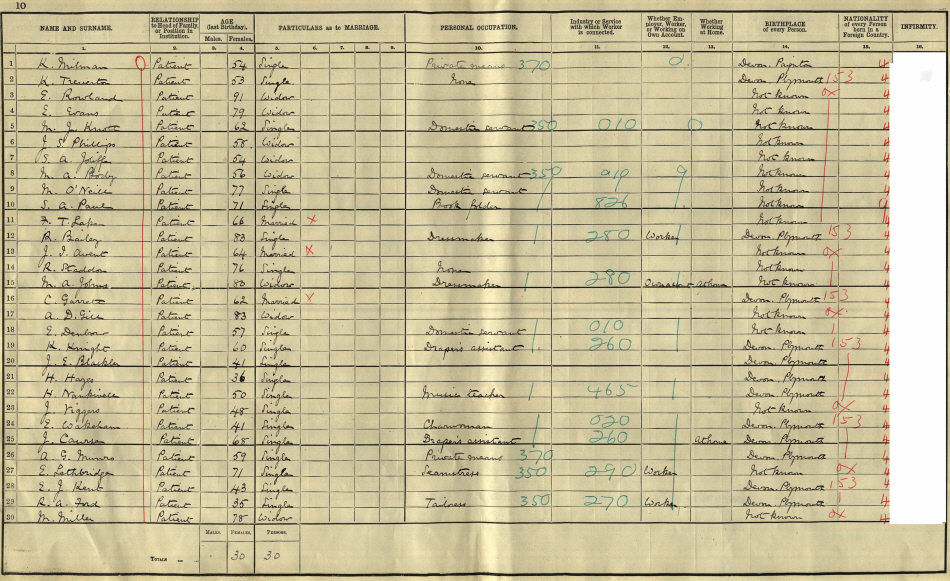 10
NAME AND SURNAME. RELATIONSHIP to Head of Family, or Position in Institution. AGE (last Birthday). Males. Females. PARTICULARS as to MARRIAGE. PERSONAL OCCUPATION. Industry or Service with which Worker is connected. Whether Employer, Worker, or Working on Own Account. Whether Working at Home. BIRTHPLACE of every Person. NATIONALITY of every Person born in a Foreign Country. INFIRMITY.
1. 2. 3. 4. 5. 6. 7. 8. 9. 10. 11. 12. 13. 14. 15. 16.
1 K. Milman Patient 54 Single Private means 370 0. Devon. Paynton 4
2 K. Treverton Patient 53 Single None Devon. Plymouth 153 4
3 E. Rowland Patient 91 Widow Not known 0x 4
4 E. Evans Patient 79 Widow Not known 4
5 M. J. Knott Patient 62 Single Domestic servant 350 010 0 Not known 4
6 J. S. Phillips Patient 58 Widow Not known 4
7 S. A. Joliffe Patient 54 Widow Not known 4
8 M. A. Patient 56 Widow Domestic servant 350 910 9 Not known 4
9 M. O'Neill Patient 77 Single Domestic servant Not known 4
10 S. A. Paul Patient 71 Single Book folder 826 Not known
11 F. T. Patient 66 Married x Not known 4
12 R. Bailey Patient 83 Single Dressmaker 280 Worker Devon. Plymouth 153 4
13 J. J. Avent Patient 64 Married x Not known 0x 4
14 R. Staddon Patient 76 Single None Not known 4
15 M. A. Johns Patient 80 Widow Dressmaker 280 Own acct At home Not known 4
16 C. Garrett Patient 62 Married x Devon. Plymouth 153 4
17 A. D. Gill Patient 83 Widow Not known 0x 4
18 E. Denbow Patient 57 Single Domestic servant 010 Not known 4
19 K. Knight Patient 60 Single Draper's assistant 260 Devon. Plymouth 153 4
20 J. E. Blackler Patient 41 Single Devon. Plymouth 4
21 H. Hayes Patient 36 Single Devon. Plymouth 4
22 H. Nankivell Patient 50 Single Music teacher 465 Devon. Plymouth 4
23 J. Viggers Patient 48 Single Not known 0x 4
24 E. Wakeham Patient 41 Single Charwoman 020 Devon. Plymouth 153 4
25 J. Patient 68 Single Draper's assistant 260 At home Devon. Plymouth 4
26 A. G. Munro Patient 59 Single Private means 370 Devon. Plymouth 4
27 E. Lethbridge Patient 71 Single Seamstress 350 290 Worker Not known 0x 4
28 E. J. Kent Patient 43 Single Devon. Plymouth 153 4
29 R. A. Ford Patient 35 Single Tailoress 350 270 Worker Devon. Plymouth 4
30 M. Miller Patient 78 Widow Not known 0x 4
MALES. FEMALES. PERSONS.
TOTALS 30 30